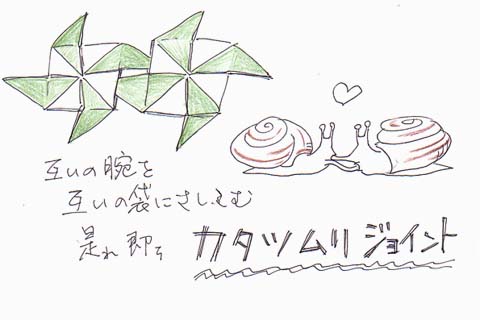 互いの腕を
互いの袋にさしこむ
是れ即ち カタツムリジョイント